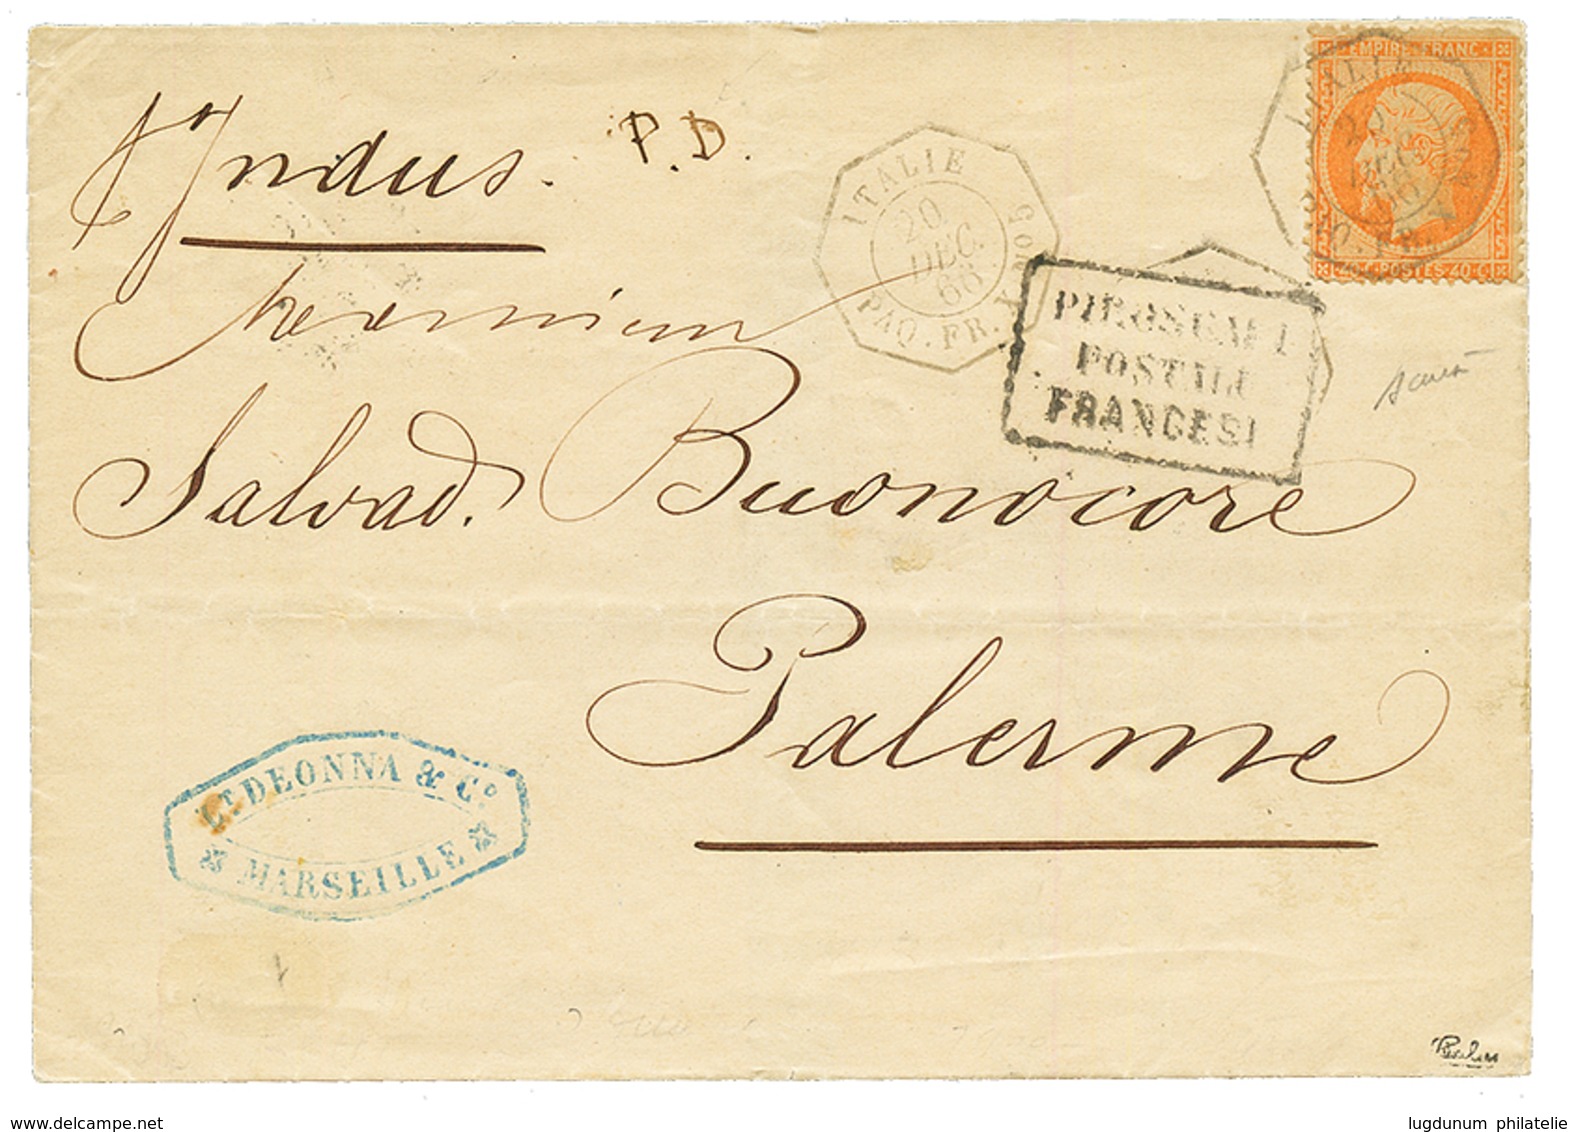 EMPIRE FRANC
40 C POSTES 40 C
Indus. P.D.
ITALIE
20
DEC.
66
PAQ. FR. X No 5
PIROSCAFI
POSTALI
FRANCESI
Salvad. Buonocore
Palerme
LT. DEONNA & Co
MARSEILLE
www.delcampe.net
lugdunum philatelie